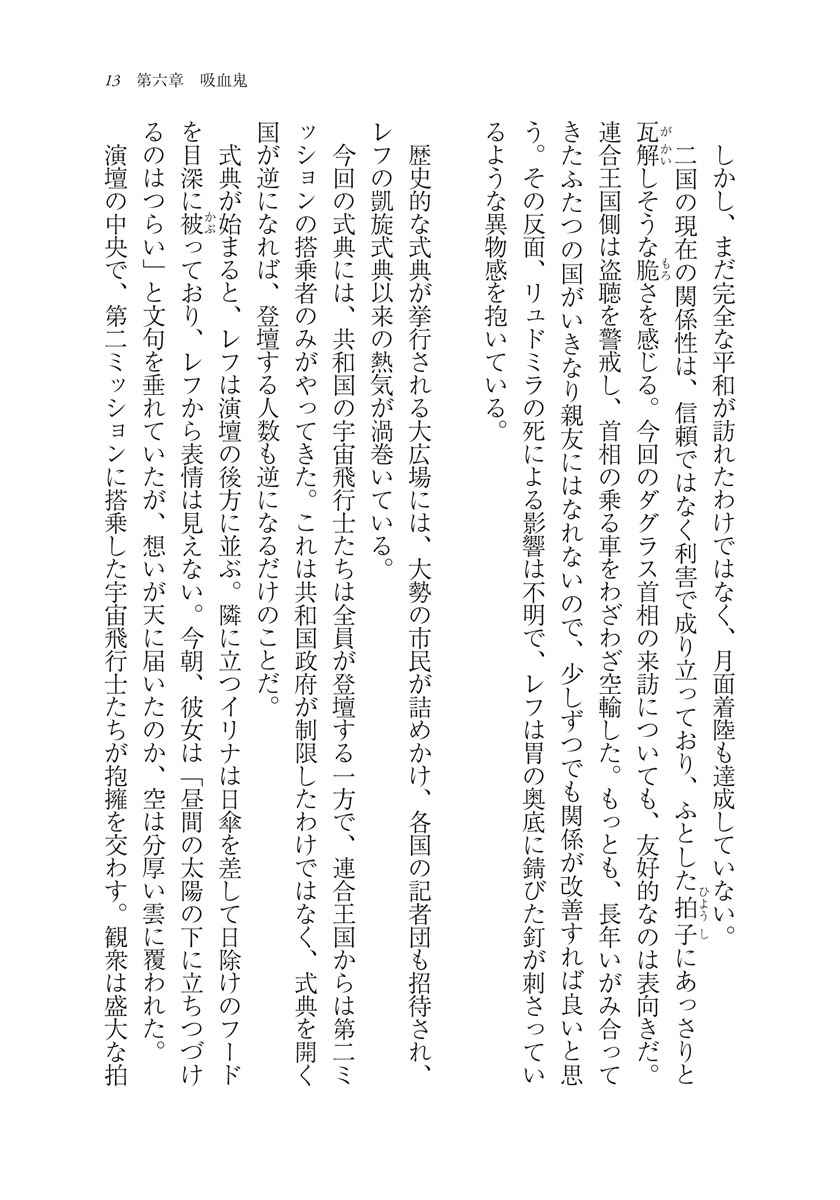 13　第六章　吸血鬼
しかし、まだ完全な平和が訪れたわけではなく、月面着陸も達成していない。
二国の現在の関係性は、信頼ではなく利害で成り立っており、ふとした拍子にあっさりと
瓦解しそうな脆さを感じる。今回のダグラス首相の来訪についても、友好的なのは表向きだ。
連合王国側は盗聴を警戒し、首相の乗る車をわざわざ空輸した。もっとも、長年いがみ合って
きたふたつの国がいきなり親友にはなれないので、少しずつでも関係が改善すれば良いと思
う。その反面、リュドミラの死による影響は不明で、レフは胃の奥底に錆びた釘が刺さってい
るような異物感を抱いている。
歴史的な式典が挙行される大広場には、大勢の市民が詰めかけ、各国の記者団も招待され、
レフの凱旋式典以来の熱気が渦巻いている。
今回の式典には、共和国の宇宙飛行士たちは全員が登壇する一方で、連合王国からは第二ミ
ッションの搭乗者のみがやってきた。これは共和国政府が制限したわけではなく、式典を開く
国が逆になれば、登壇する人数も逆になるだけのことだ。
式典が始まると、レフは演壇の後方に並ぶ。隣に立つイリナは日傘を差して日除けのフード
を目深に被っており、レフから表情は見えない。今朝、彼女は「昼間の太陽の下に立ちつづけ
るのはつらい」と文句を垂れていたが、想いが天に届いたのか、空は分厚い雲に覆われた。
演壇の中央で、第二ミッションに搭乗した宇宙飛行士たちが抱擁を交わす。観衆は盛大な拍